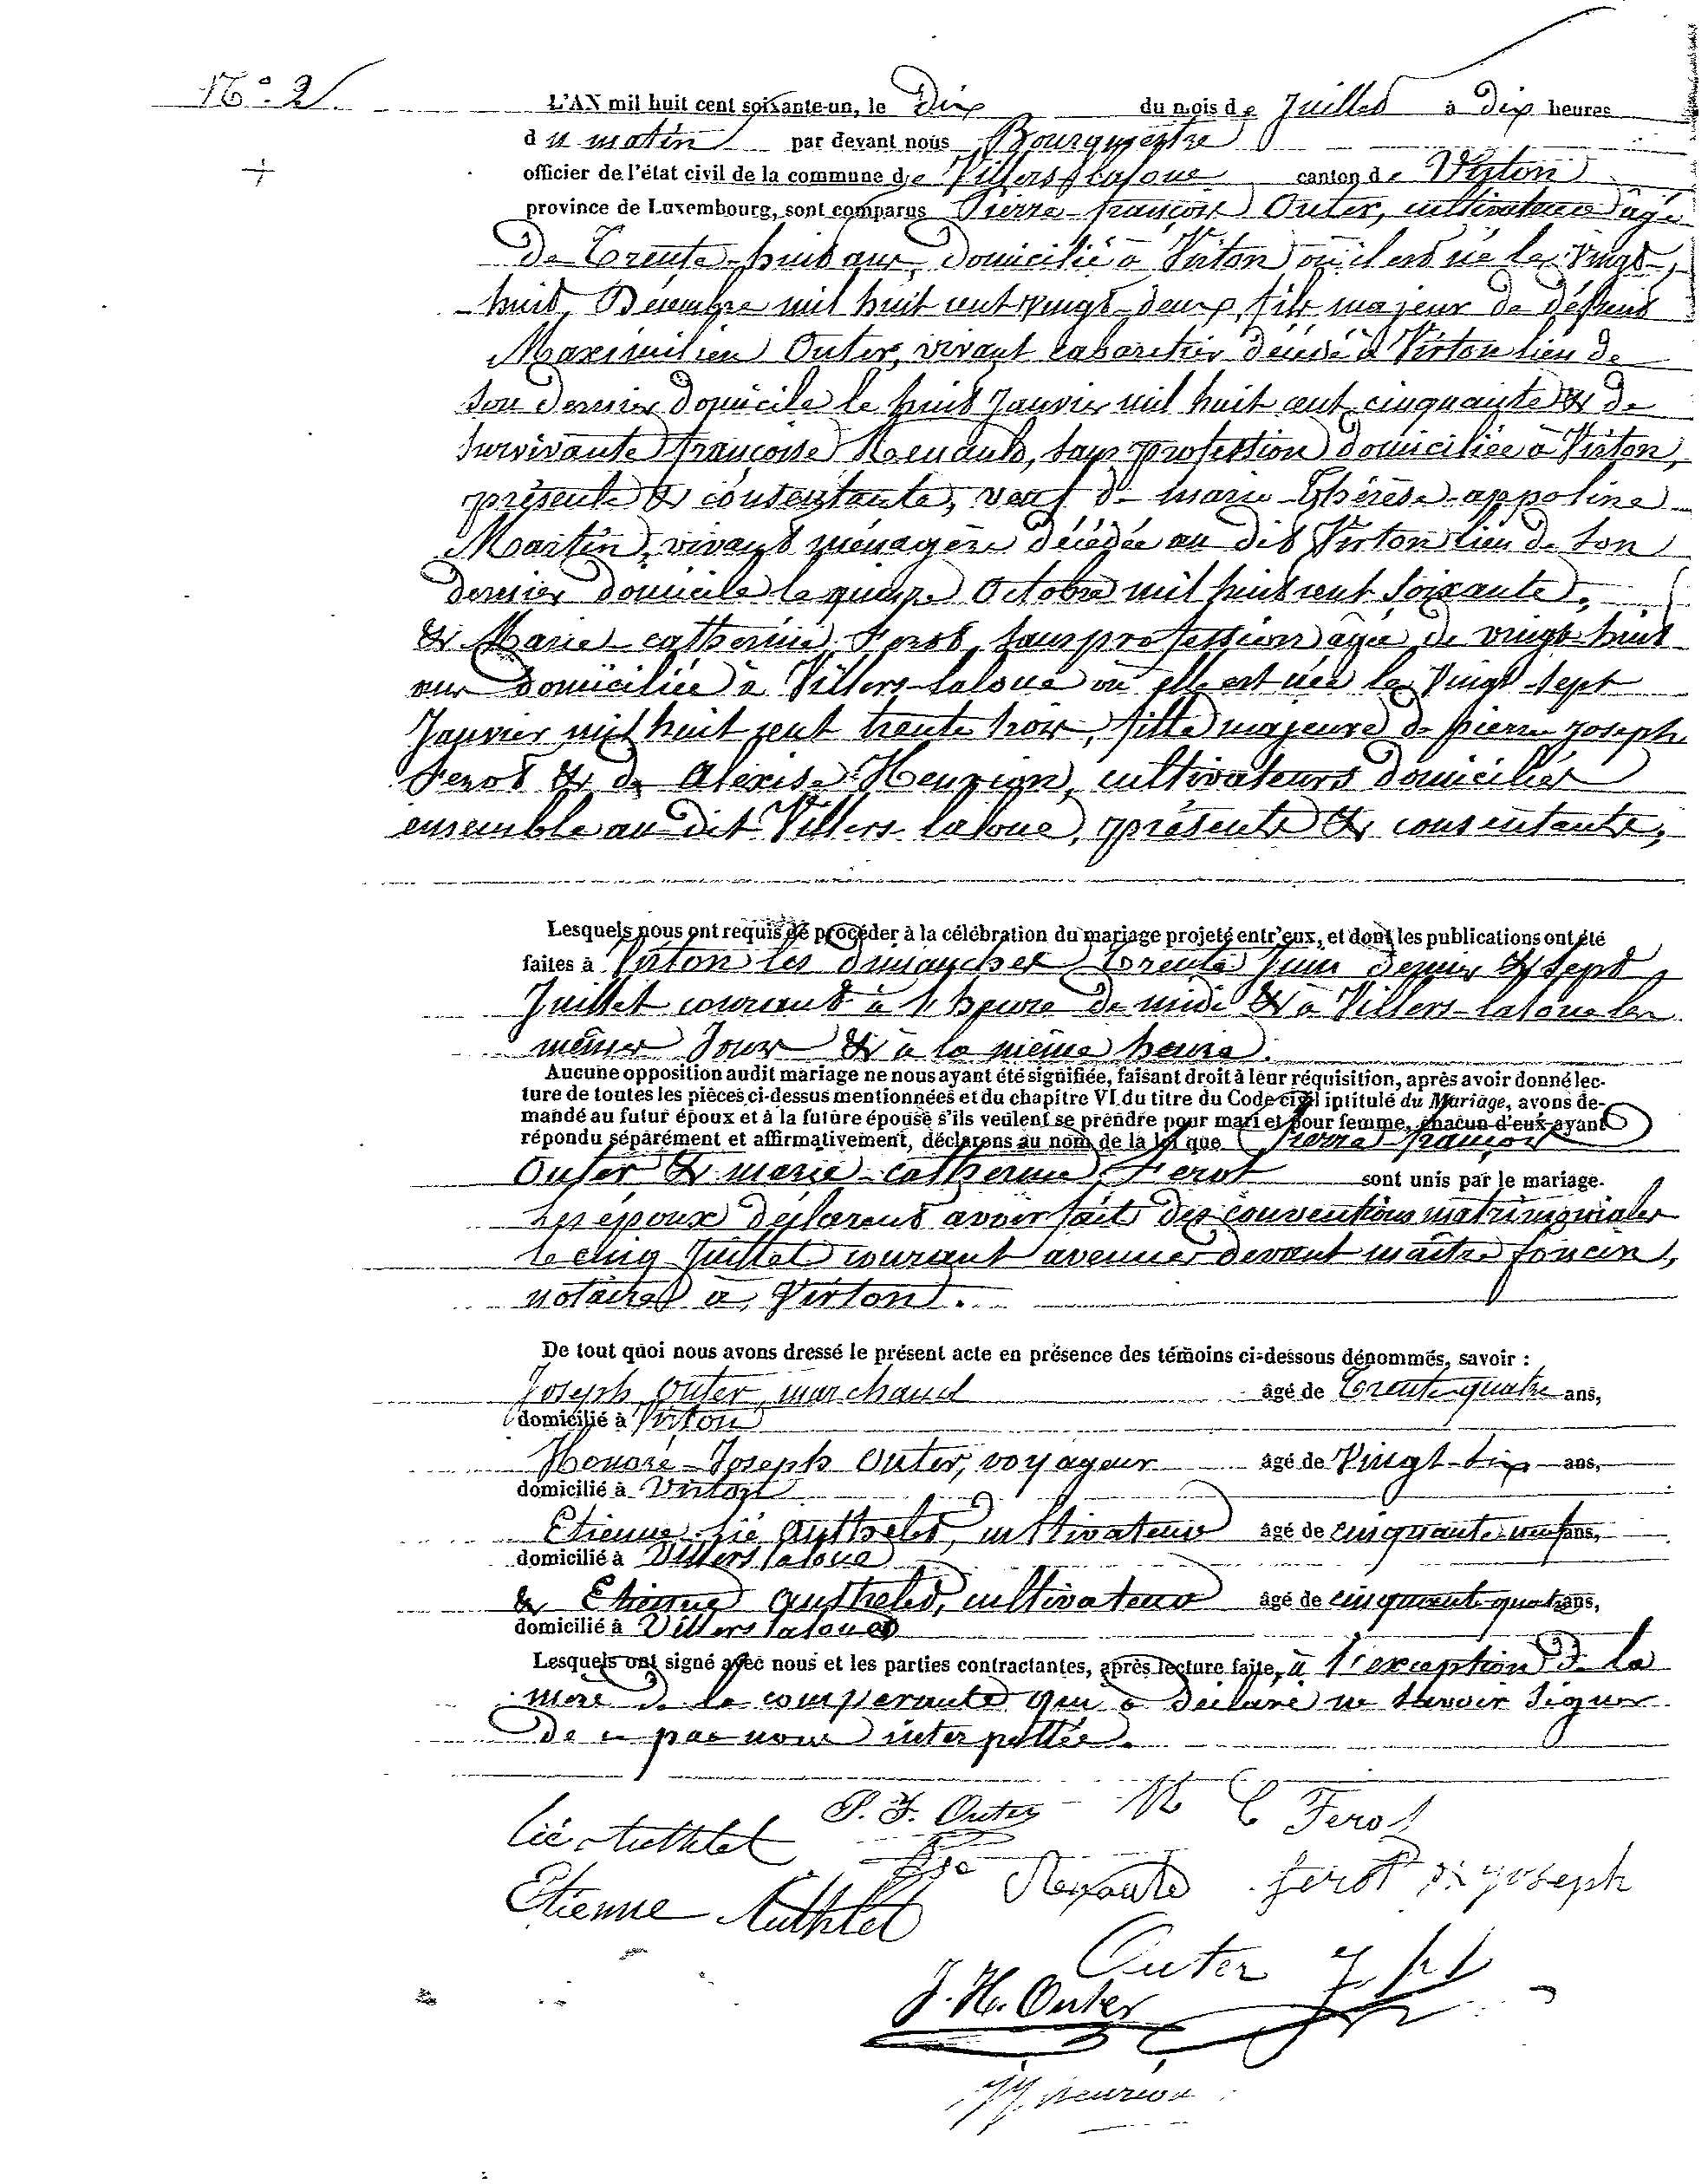 No. 2
L'AN mil huit cent soixante-un, le Dix du mois de Juillet à Dix heures
du matin par devant nous Bourgmestre
officier de l'état civil de la commune de Villers-laloue canton de Virton
province de Luxembourg, sont comparus Pierre-françois Outer, cultivateur âgé
de Trente-huit ans, domicilié à Virton où il est né le vingt-
huit Décembre mil huit cent vingt-deux, fils majeur de défunt
Maximilien Outer, vivant cabaretier décédé à Virton lieu de
son dernier domicile le huit Janvier mil huit cent cinquante & de
survivante françoise Renauld, sans profession domiciliée à Virton,
présente & consentante, veuf de marie-Thérèse-appoline
Martin, vivant ménagère décédée au dit Virton lieu de son
dernier domicile le quinze Octobre mil huit cent soixante,
& Marie-catherine Ferot, sans profession âgée de vingt-huit
ans domiciliée à Villers-laloue où elle est née le Vingt-sept
Janvier mil huit cent trente trois, fille majeure de pierre joseph
Ferot & de Alexise Henrion, cultivateurs domiciliés
ensemble au dit Villers-laloue, présents & consentants,
Lesquels nous ont requis de procéder à la célébration du mariage projeté entr'eux, et dont les publications ont été
faites à Virton les dimanches Trente Juin dernier & sept
Juillet courant à 1 heure de midi & à Villers-laloue les
mêmes Jours & à la même heure.
Aucune opposition audit mariage ne nous ayant été signifiée, faisant droit à leur réquisition, après avoir donné lec-
ture de toutes les pièces ci-dessus mentionnées et du chapitre VI du titre du Code civil intitulé du Mariage, avons de-
mandé au futur époux et à la future épouse s'ils veulent se prendre pour mari et pour femme, chacun d'eux ayant
répondu séparément et affirmativement, déclarons au nom de la loi que Pierre-françois
Outer & marie-catherine Ferot sont unis par le mariage.
Les époux déclarent avoir fait des conventions matrimoniales
le cinq Juillet courant avenues devant maître foncin,
notaire à Virton.
De tout quoi nous avons dressé le présent acte en présence des témoins ci-dessous dénommés, savoir :
Joseph Outer, marchand âgé de Trente-quatre ans,
domicilié à Virton
Honoré-Joseph Outer, voyageur âgé de Vingt-six ans,
domicilié à Virton
Etienne-lié authelet, cultivateur âgé de cinquante-neuf ans,
domicilié à Villers laloue
& Etienne authelet, cultivateur âgé de cinquante-quatre ans,
domicilié à Villers laloue
Lesquels ont signé avec nous et les parties contractantes, après lecture faite, à l'exception de la
mère de la comparante qui a déclaré ne savoir signer
de ce par nous interpellée.
P. F. Outer M C Ferot
lié Authlet
fse Renauld ferot pr joseph
Etienne Authlet
Outer
J. H. Outer
henrion